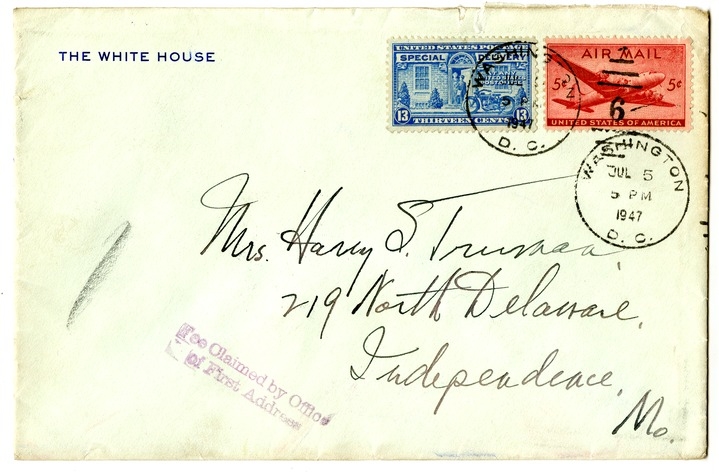 THE WHITE HOUSE
UNITED STATES POSTAGE
SPECIAL DELIVERY
13 THIRTEEN CENTS 13
AIR MAIL
5¢ 5¢
6
UNITED STATES OF AMERICA
WASHINGTON
1947
D. C.
WASHINGTON
JUL 5
5 PM
1947
D. C.
Mrs. Harry S. Truman,
219 North Delaware,
Independence,
Mo.
Fee Claimed by Office
of First Address